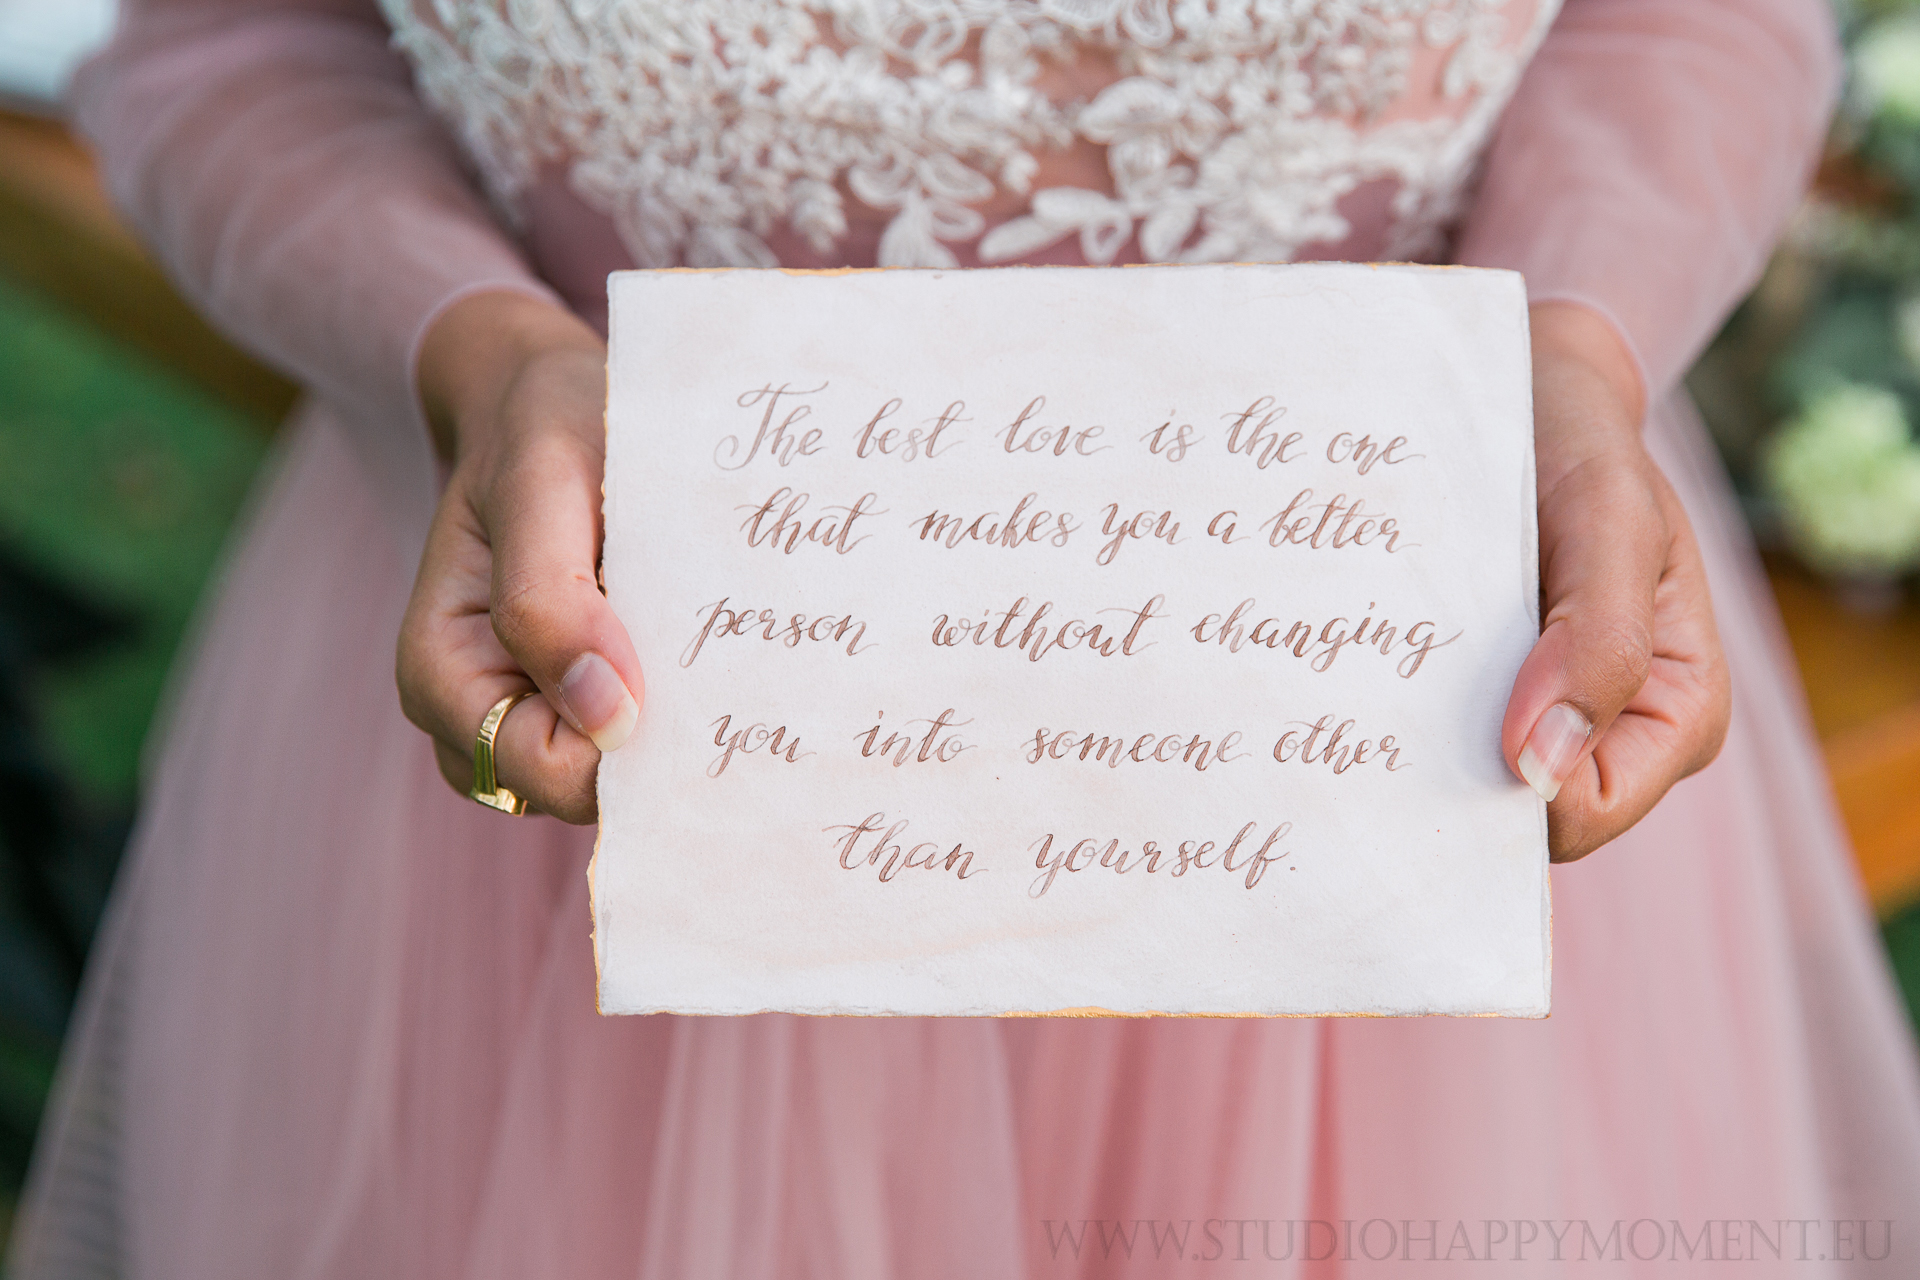 The best love is the one
that makes you a better
person without changing
you into someone other
than yourself.
WWW.STUDIOHAPPYMOMENT.EU